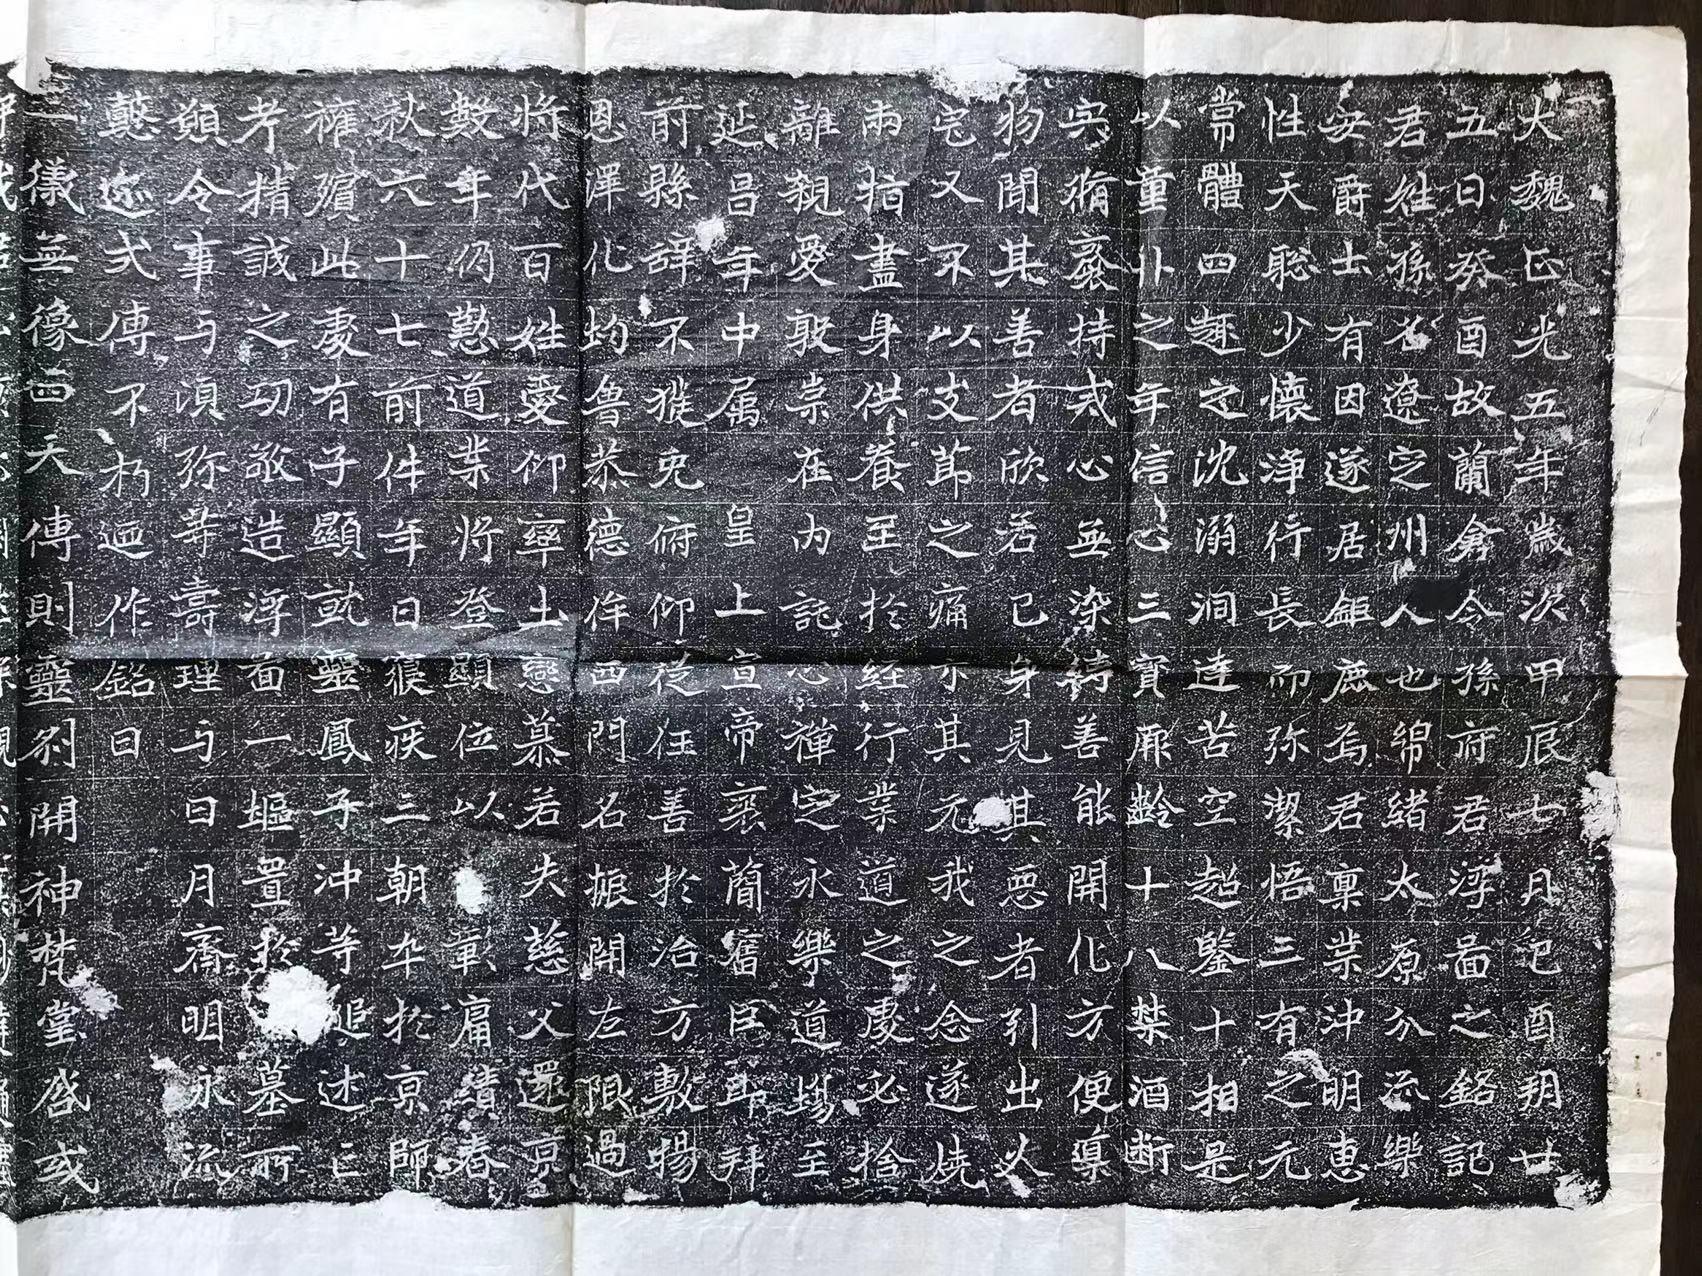 大魏正光五年歲次甲辰七月己酉朔廿
五日癸酉故蘭倉令孫府君浮啚之銘記
君姓孫名遼定州人也綿緒太原分流樂
安爵土有因遂居鉅鹿焉君稟業沖明惠
性天聡少懷淨行長而弥潔悟三有之无
常體四趣之沈溺洞達苦空超鑒十相是
以童丱之年信心三寶厥齡十八禁酒断
宍脩齋持戒心無染緣善能開化方便導
物聞其善者欣若己身見其惡者引出火
宅又不以支莭之痛示其无我之念遂燒
兩指盡身供養至扵經行業道之處必捨
離親愛敦崇在內託心禪定永樂道場至
延昌年中属 皇上宣帝褒簡舊臣即拜
前縣辞不獲免俯仰從任善扵治方敷揚
恩澤化均魯恭德侔西門名振開左限過
將代百姓愛仰率土戀慕若夫慈父還京
數年仍懃道業將登顯位以 彰庸績春
秋六十七前件年日寢疾三朝卒扵京師
權殯此處有子顯就靈鳳子沖等追述亡
考精誠之功敬造浮啚一塸置扵墓所
願令事与湏弥等壽理与日月齊明永流
懿迹式傳不朽迺作銘曰
二儀無像四天傳則靈剎開神梵堂啓或